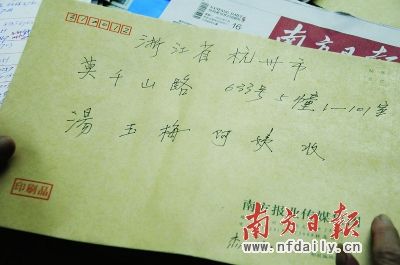 南方日报
16
浙江省杭州市
莫干山路 633号5幢1-101室
湯玉梅阿姨收
印刷品
南方报业传媒
南方日报
www.nfdaily.cn